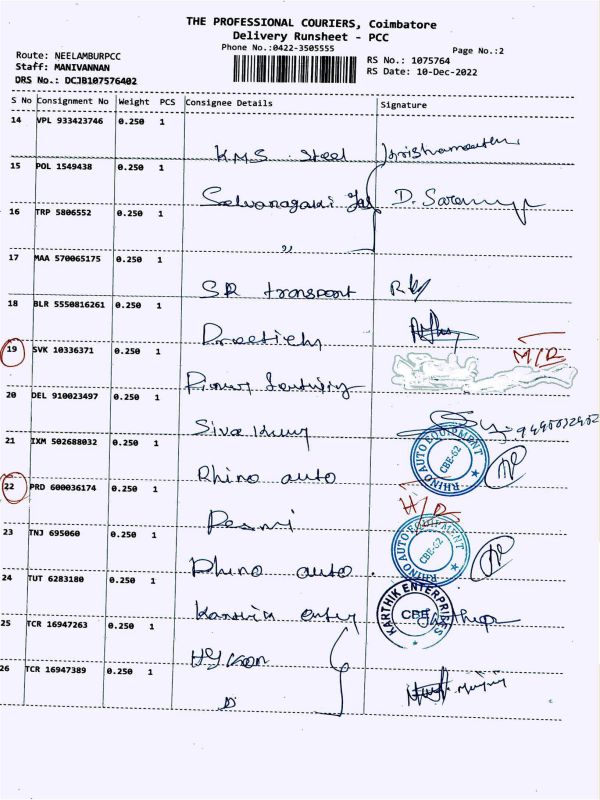 THE PROFESSIONAL COURIERS, Coimbatore
Delivery Runsheet - PCC
Phone No.:0422-3505555
Page No.:2
Route: NEELAMBURPCC
Staff: MANIVANNAN
DRS No.: DCJB107576402
RS No.: 1075764
RS Date: 10-Dec-2022
S No Consignment No Weight PCS Consignee Details Signature
14 VPL 933423746 0.250 1
K.M.S Steel
15 POL 1549438 0.250 1
D. Saranya
16 TRP 5806552 0.250 1
"
17 MAA 570065175 0.250 1
SR transport
18 BLR 5550816261 0.250 1
19 SVK 10336371 0.250 1
20 DEL 910023497 0.250 1
Siva Kumar
21 IXM 502688032 0.250 1
RHINO AUTO EQUIPMENT
CBE-62
Rhino auto
22 PRD 600036174 0.250 1
23 TNJ 695060 0.250 1
RHINO AUTO EQUIPMENT
CBE-62
Rhino auto
24 TUT 6283180 0.250 1
KARTHIK ENTERPRISES
CBE
25 TCR 16947263 0.250 1
26 TCR 16947389 0.250 1